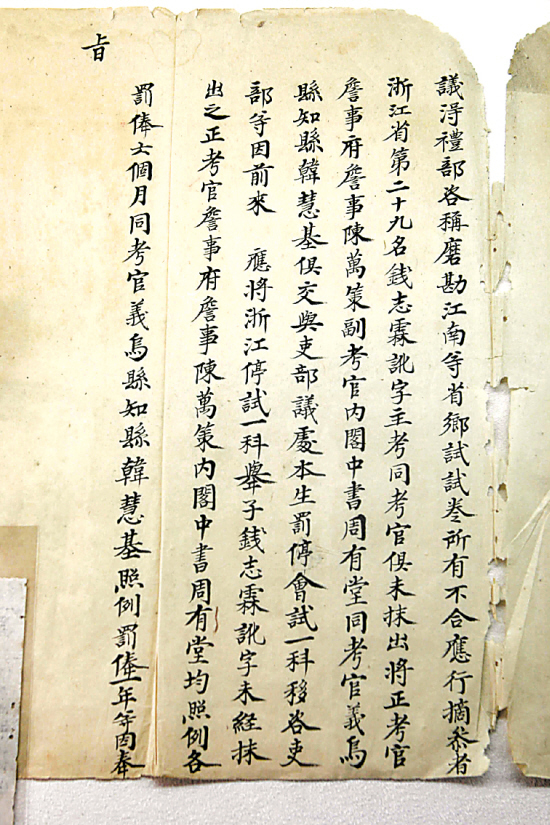 議得禮部咨稱磨勘江南等省鄉試試卷所有不合應行摘叅者
浙江省第二十九名錢志霖訛字主考同考官俱未抹出將正考官
詹事府詹事陳萬策副考官內閣中書周有堂同考官義烏
縣知縣韓慧基俱交與吏部議處本生罰停會試一科移咨吏
部等因前來 應將浙江停試一科舉子錢志霖訛字未經抹
出之正考官詹事府詹事陳萬策內閣中書周有堂均照例各
罰俸六個月同考官義烏縣知縣韓慧基照例罰俸一年等因奉
旨